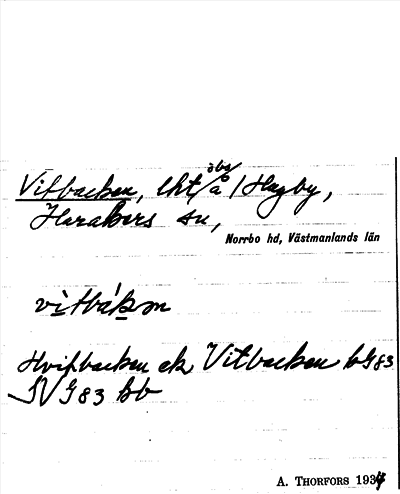 Vitbacken, lht/å /Hagby,
Harakers sn,
Norrbo hd, Västmanlands län
vìtbákən
Hvitbacken ek Vitbacken bG83
JVG83 bb
A. THORFORS 1934